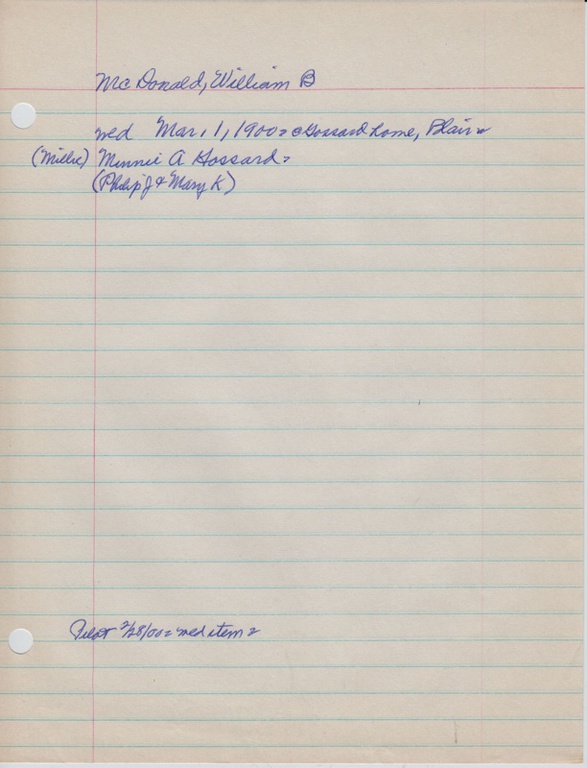 McDonald, William B
wed Mar, 1, 1900= @ Gossard home, Blair=
(Millie) Minnie A Gossard=
(Philip J & Mary K)
Pilot 2/28/00= wed item=